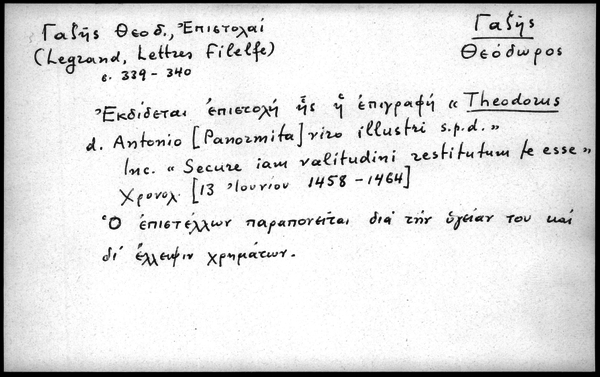 Γαζῆς Θεοδ., Ἐπιστολαί
(Legrand, Lettres Filelfe)
σ. 339 - 340
Γαζῆς
Θεόδωρος
Ἐκδίδεται ἐπιστολή ἧς ἡ ἐπιγραφή « Theodorus
d. Antonio [Panormita] viro illustri s.p.d.»
Inc. « Secure iam valitudini restitutum te esse»
Χρονολ. [13 Ἰουνίου 1458 - 1464]
Ὁ ἐπιστέλλων παραπονεῖται διά τήν ὑγείαν του καί
δι' ἔλλειψιν χρημάτων.